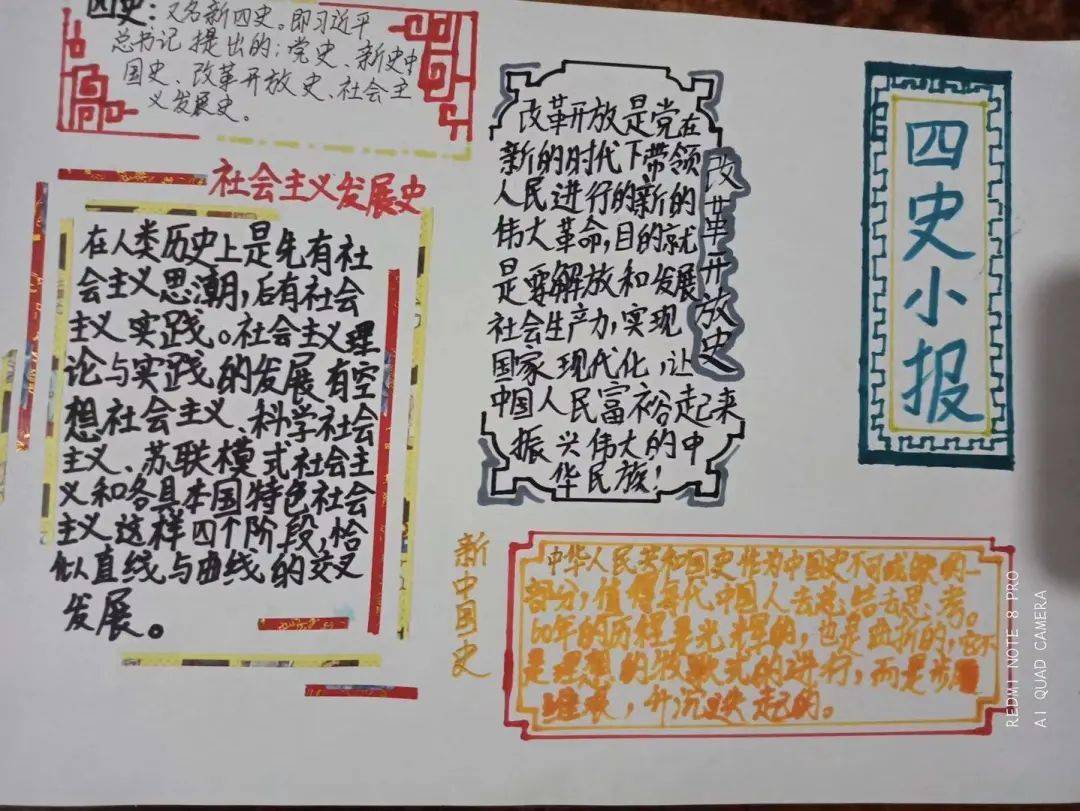 四史小报
四史：又名新四史。即习近平
总书记提出的：党史、新史中
国史、改革开放史、社会主
义发展史。
社会主义发展史
在人类历史上是先有社
会主义思潮，后有社会
主义实践。社会主义理
论与实践的发展有空
想社会主义、科学社会
主义、苏联模式社会主
义和各具本国特色社会
主义这样四个阶段，恰
似直线与曲线的交叉
发展。
改革开放史
改革开放是党在
新的时代下带领
人民进行的新的
伟大革命，目的就
是要解放和发展
社会生产力，实现
国家现代化，让
中国人民富裕起来
振兴伟大的中
华民族！
新中国史
中华人民共和国史作为中国史不可或缺的一
部分，值得每代中国人去总结去思考。
60年的历程是光辉的，也是曲折的，它不
是理想的牧歌式的进行，而是步履
维艰，升沉迭起的。
REDMI NOTE 8 PRO
AI QUAD CAMERA